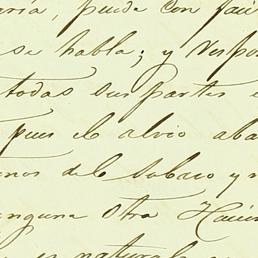 aría, puede con fací
se habla; y Respo
todas sus partes e
pues el alvio aba
enos del Sobaco y n
inguna otra Hacien
es natural